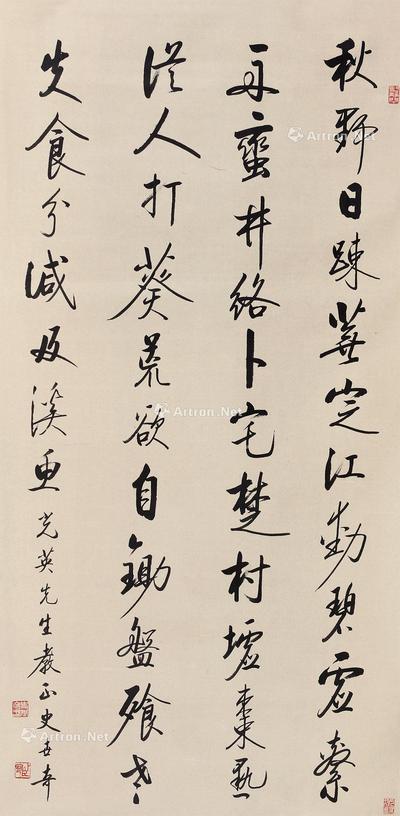 秋野日踈蕪寒江動碧虛繫
舟蠻井絡卜宅楚村墟棗熟
從人打葵荒欲自鋤盤飧老
夫食分減及溪魚
光英先生教正 史世奇
Artron.Net
Artron.Net
Artron.Net
Artron.Net